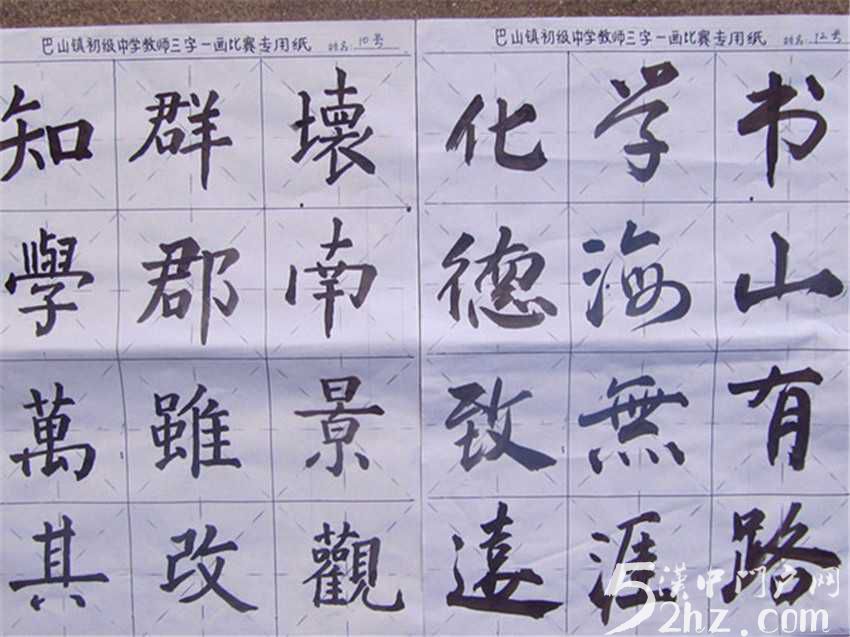 巴山镇初级中学教师三字一画比赛专用纸 姓名: 10号
壞南景觀
群郡雖改
知學萬其
巴山镇初级中学教师三字一画比赛专用纸 姓名: 12号
书山有路
学海無涯
化德致遠
漢中门户网
52hz.com